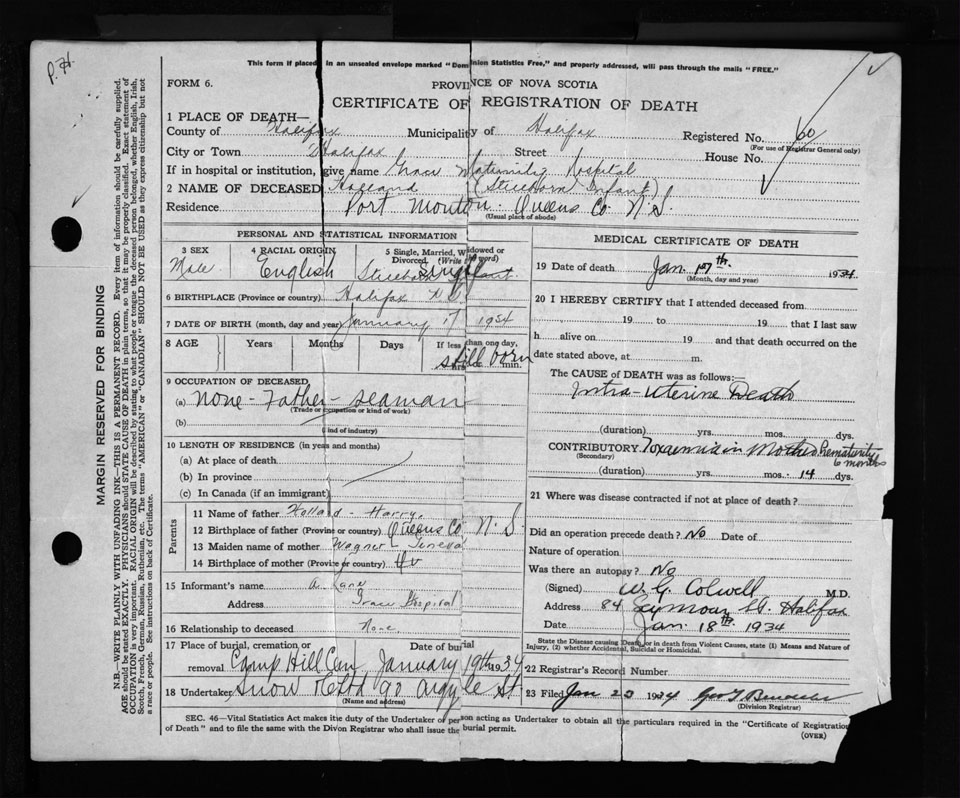 P. H.
This form if placed in an unsealed envelope marked "Dominion Statistics Free," and properly addressed, will pass through the mails "FREE."
FORM 6.
PROVINCE OF NOVA SCOTIA
CERTIFICATE OF REGISTRATION OF DEATH
1 PLACE OF DEATH—
County of Halifax Municipality of Halifax Registered No. 60
(For use of Registrar General only)
City or Town Halifax Street House No.
If in hospital or institution, give name Grace Maternity Hospital
2 NAME OF DECEASED Holland (Stillborn Infant)
Residence Port Mouton. Queens Co N.S.
(Usual place of abode)
PERSONAL AND STATISTICAL INFORMATION
3 SEX 4 RACIAL ORIGIN 5 Single, Married, Widowed or Divorced. (Write the word)
Male English Stillborn Infant. Single
6 BIRTHPLACE (Province or country) Halifax N.S.
7 DATE OF BIRTH (month, day and year) January 17 1934
8 AGE Years Months Days If less than one day, hrs. or min.
still born
9 OCCUPATION OF DECEASED
(a) None - Father - seaman
(Trade or occupation or kind of work)
(b)
(Kind of industry)
10 LENGTH OF RESIDENCE (in years and months)
(a) At place of death
(b) In province
(c) In Canada (if an immigrant)
Parents
11 Name of father Holland - Harry.
12 Birthplace of father (Province or country) Queens Co N.S.
13 Maiden name of mother Wagner - Geneva
14 Birthplace of mother (Province or country)
15 Informant's name A. Lane
Address Grace Hospital
16 Relationship to deceased None.
17 Place of burial, cremation or removal Date of burial
Camp Hill Cem January 19th 1934
18 Undertaker Snow & Co Ltd 90 Argyle St
(Name and address)
MEDICAL CERTIFICATE OF DEATH
19 Date of death Jan. 17th. 1934
(Month, day and year)
20 I HEREBY CERTIFY that I attended deceased from
19 to 19 that I last saw
h alive on 19 and that death occurred on the
date stated above, at m.
The CAUSE of DEATH was as follows:—
Intra-uterine Death
(duration) yrs. mos. dys.
CONTRIBUTORY Toxaemia in Mother Prematurity 6 months
(Secondary)
(duration) yrs. mos. 14 dys.
21 Where was disease contracted if not at place of death?
Did an operation precede death? No Date of
Nature of operation
Was there an autopsy? No
(Signed) W. G. Colwell M.D.
Address 84 Seymour St. Halifax
Date Jan. 18th 1934
State the Disease causing Death, or in death from Violent Causes, state (1) Means and Nature of Injury, (2) whether Accidental, Suicidal or Homicidal.
22 Registrar's Record Number
23 Filed Jan 20 1934
(Division Registrar)
SEC. 46—Vital Statistics Act makes it the duty of the Undertaker or person acting as Undertaker to obtain all the particulars required in the "Certificate of Registration
of Death" and to file the same with the Division Registrar who shall issue the burial permit.
(OVER)
MARGIN RESERVED FOR BINDING
N.B.—WRITE PLAINLY WITH UNFADING INK—THIS IS A PERMANENT RECORD. Every item of information should be carefully supplied.
AGE should be stated EXACTLY. PHYSICIANS should STATE CAUSE OF DEATH in plain terms, so that it may be properly classified. Exact statement of
OCCUPATION is very important. RACIAL ORIGIN will be described by stating to what people or tongue the deceased person belonged, whether English, Irish,
Scotch, French, German, Russian, Ruthenian, etc. The terms "AMERICAN" or "CANADIAN" SHOULD NOT BE USED as they express citizenship but not
a race or people. See instructions on back of Certificate.